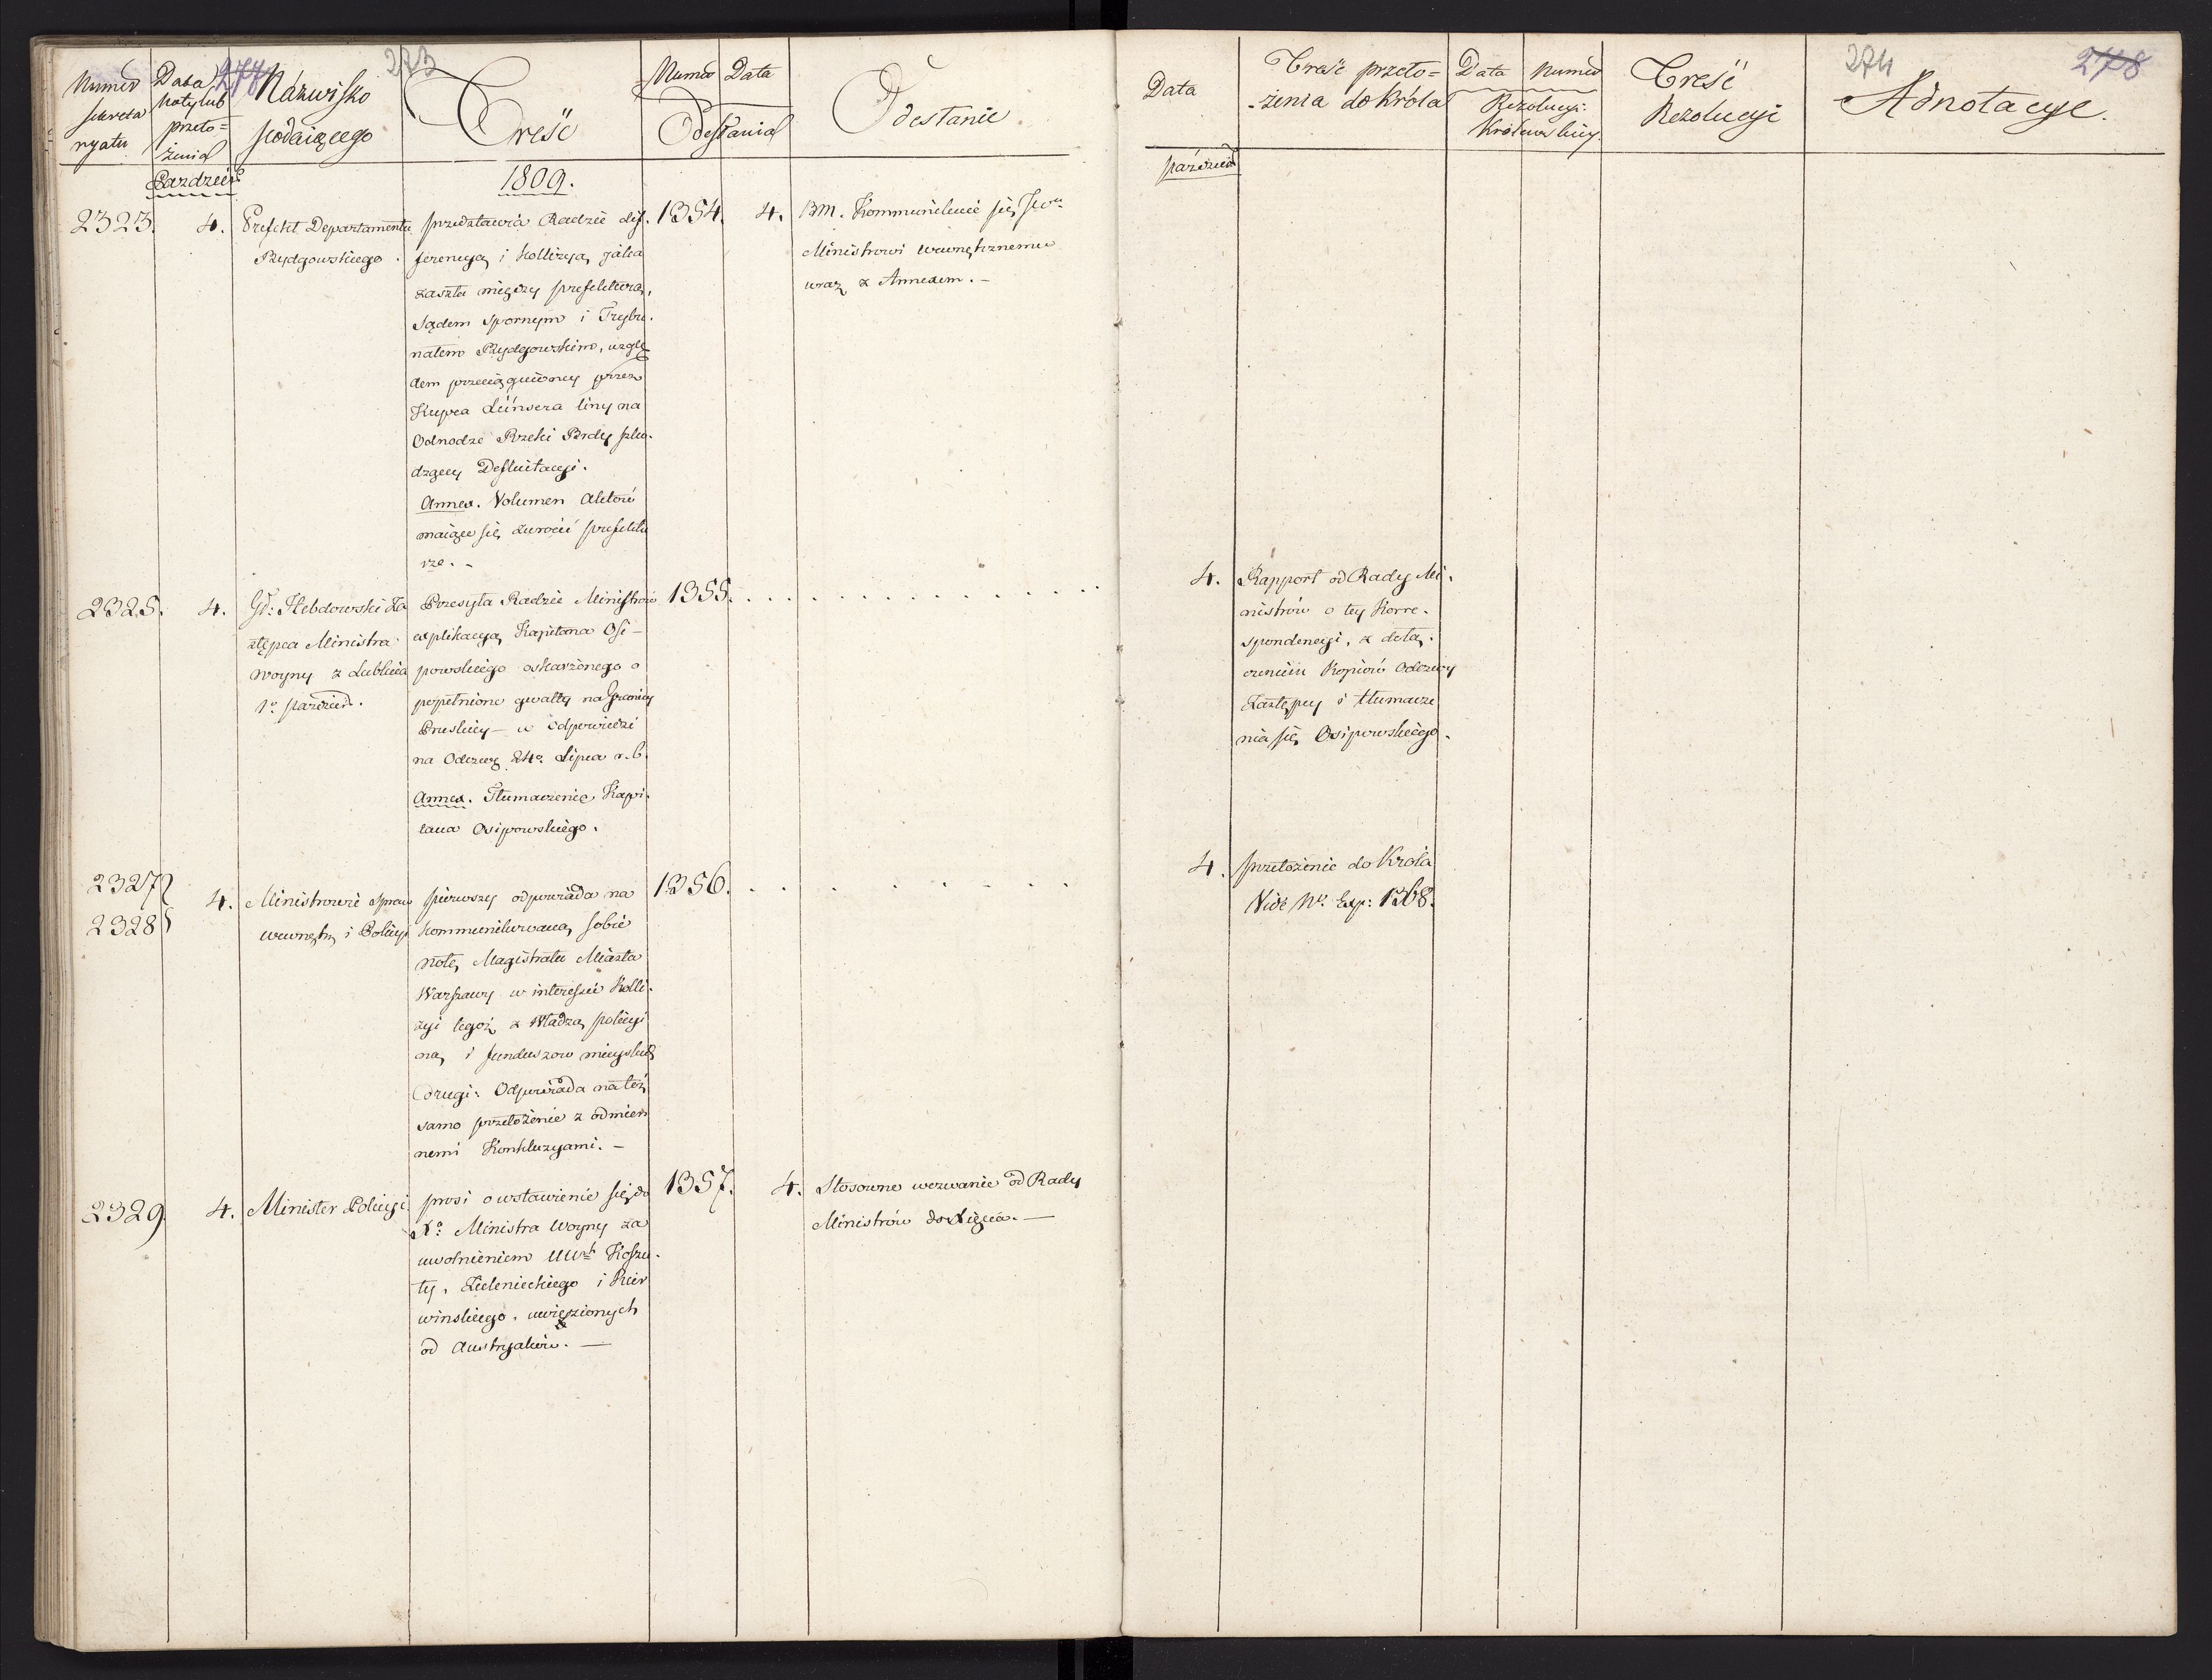 273
277
Numer
sekreta
ryatu
Data
noty lub
przeło=
żenia
Nazwisko
podaiącego
Treść
Numer Data
Odesłania
Odesłanie
Pazdzier.
1809.
2323. 4. Prefekt Departamentu
Bydgowskiego.
przedstawia Radzie dif.
ferencyą i kollizyą jaka
zaszła między prefekturą,
Sądem Spornym i Trybu.
nałem Bydgowskim, wzglę
dem przeciągnioney przez
Kupca liny na
Odnodze Rzeki Brdy szko.
dzącey Defluitacyi.
Annex. Volumen Aktow
maiące się zwrocić prefektu
rze. -
1354. 4. BM. Kommunikuie się JW
Ministrowi wewnętrznemu
wraz z Annexem. -
2325. 4. Gł: Hebdowski Za
stępca Ministra
Woyny z Lublina
1o pazdzier.
Przesyła Radzie Ministrow
explikacyą Kapitana Osi-
powskiego oskarżonego o
popełnione gwałty na Granicy
Pruskiey - w odpowiedzi
na Odezwę 24o Lipca r. b.
Annex. Tłumaczenie Kapi.
tana Osipowskiego.
1355. . . . . . . . . . . . . . .
2327
2328
4. Ministrowie Spraw
wewnętrz i Policyi
pierwszy odpowiada na
kommunikowaną sobie
notę Magistratu Miasta
Warszawy w interessie Kolli.
zyi tegoż z Władzą policyi
ną i funduszow mieyskich
Drugi: Odpowiada na też
samo przełożenie z odmien
nemi Konkluzyami. -
1356. . . . . . . .
2329 4. Minister Policyi
prosi o wstawienie się do
Xo: Ministra Woyny za
uwolnieniem UWch Koszu.
ty, Zielenieckiego i Kier
winskiego, uwięzionych
od Austryaków. -
1357. 4. Stosowne wezwanie od Rady
Ministrów do Xięcia. -
274
278
Data
Treść przeło=
-żenia do Króla
Data Numer
Rezolucyi
Królewskiey.
Treść
Rezolucyi
Adnotacye.
pazdzier
4. Rapport od Rady Mi.
nistrów o tey Korre.
spondencyi, z dołą.
czeniem Kopiow Odezwy
Zastępcy i tłumacze
nia się Osipowskiego.
4. przełożenie do Krola
Vide No. Exp: 1368.